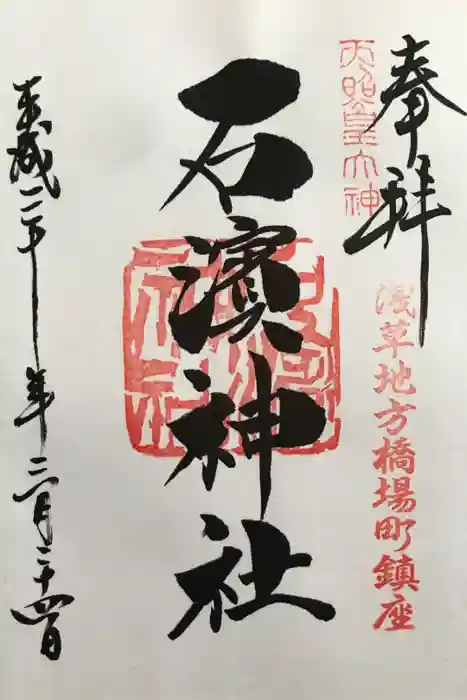 奉拝
天照皇大神
浅草地方橋場町鎮座
石濱神社
平成二十年三月二十四日